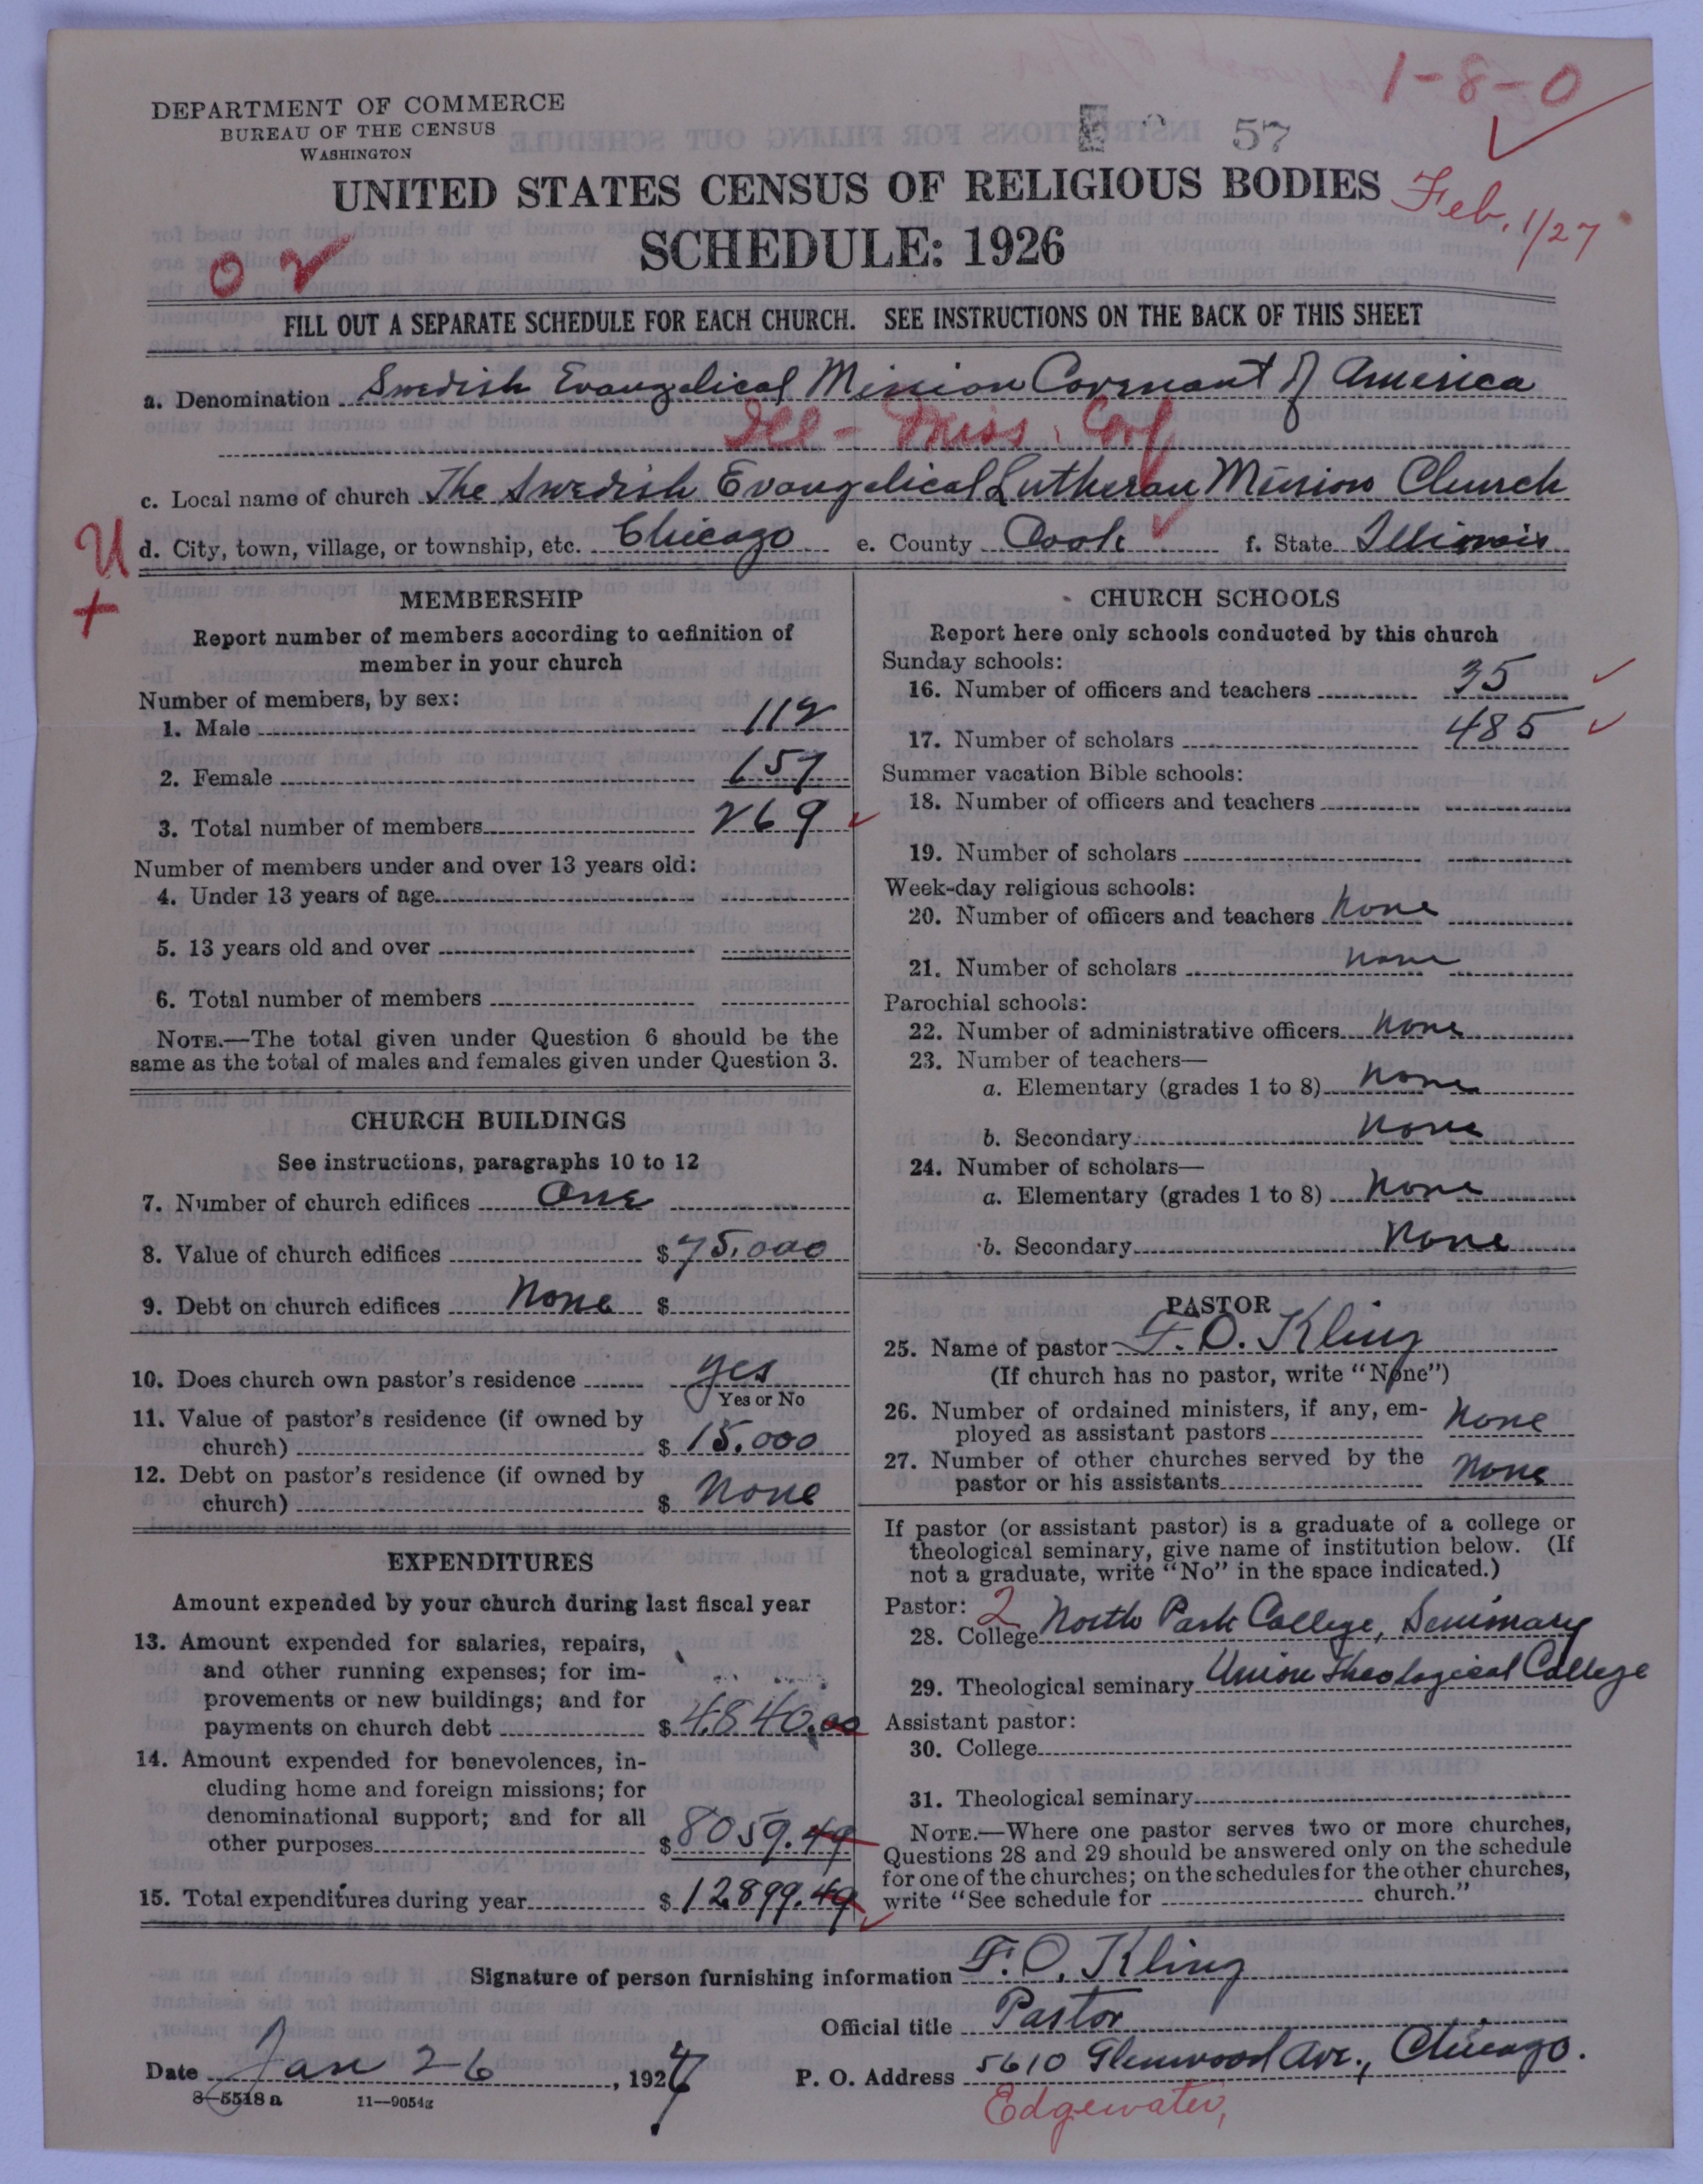 1-8-0
DEPARTMENT OF COMMERCE
BUREAU OF THE CENSUS
WASHINGTON
57
UNITED STATES CENSUS OF RELIGIOUS BODIES
Feb. 1/27
SCHEDULE: 1926
FILL OUT A SEPARATE SCHEDULE FOR EACH CHURCH. SEE INSTRUCTIONS ON THE BACK OF THIS SHEET
a. Denomination Swedish Evangelical Mission Covenant of America
Ill - Miss. Cof
c. Local name of church The Swedish Evangelical Lutheran Mission Church
U
d. City, town, village, or township, etc. Chicago e. County Cook f. State Illinois
+
MEMBERSHIP
Report number of members according to definition of
member in your church
Number of members, by sex:
1. Male 112
2. Female 157
3. Total number of members 269
Number of members under and over 13 years old:
4. Under 13 years of age
5. 13 years old and over
6. Total number of members
NOTE.—The total given under Question 6 should be the
same as the total of males and females given under Question 3.
CHURCH BUILDINGS
See instructions, paragraphs 10 to 12
7. Number of church edifices One
8. Value of church edifices $75.000
9. Debt on church edifices None $
10. Does church own pastor's residence yes
Yes or No
11. Value of pastor's residence (if owned by
church) $15.000
12. Debt on pastor's residence (if owned by
church) $ None
EXPENDITURES
Amount expended by your church during last fiscal year
13. Amount expended for salaries, repairs,
and other running expenses; for im-
provements or new buildings; and for
payments on church debt $4840.00
14. Amount expended for benevolences, in-
cluding home and foreign missions; for
denominational support; and for all
other purposes $8059.49
15. Total expenditures during year $12899.49
CHURCH SCHOOLS
Report here only schools conducted by this church
Sunday schools:
16. Number of officers and teachers 35
17. Number of scholars 485
Summer vacation Bible schools:
18. Number of officers and teachers
19. Number of scholars
Week-day religious schools:
20. Number of officers and teachers None
21. Number of scholars none
Parochial schools:
22. Number of administrative officers None
23. Number of teachers—
a. Elementary (grades 1 to 8) None
b. Secondary None
24. Number of scholars—
a. Elementary (grades 1 to 8) None
b. Secondary None
PASTOR
25. Name of pastor F. O. Kling
(If church has no pastor, write "None")
26. Number of ordained ministers, if any, em-
ployed as assistant pastors None
27. Number of other churches served by the
pastor or his assistants None
If pastor (or assistant pastor) is a graduate of a college or
theological seminary, give name of institution below. (If
not a graduate, write "No" in the space indicated.)
Pastor: 2
28. College North Park College, Seminary
29. Theological seminary Union Theological College
Assistant pastor:
30. College
31. Theological seminary
NOTE.—Where one pastor serves two or more churches,
Questions 28 and 29 should be answered only on the schedule
for one of the churches; on the schedules for the other churches,
write "See schedule for church."
Signature of person furnishing information F. O. Kling
Official title Pastor
Date Jan 26, 1927 P. O. Address 5610 Glenwood Ave., Chicago.
8-5518 a 11—9054a
Edgewater,